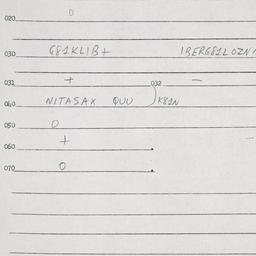 020 0
030 G81KLIB+ IBERG81LOZN
031 + 032 -
040 NITASAX QUU K81N
050 0
060 +
070 0